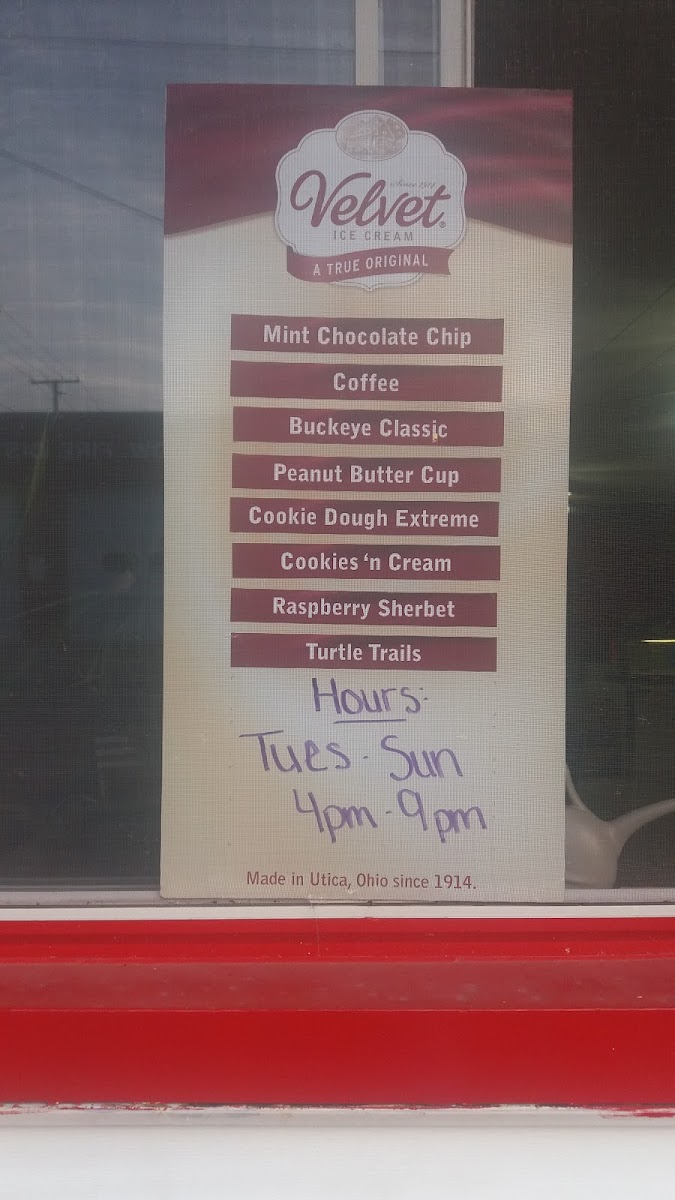 Since 1914
Velvet®
ICE CREAM
A TRUE ORIGINAL
Mint Chocolate Chip
Coffee
Buckeye Classic
Peanut Butter Cup
Cookie Dough Extreme
Cookies 'n Cream
Raspberry Sherbet
Turtle Trails
Hours:
Tues - Sun
4pm - 9pm
Made in Utica, Ohio since 1914.